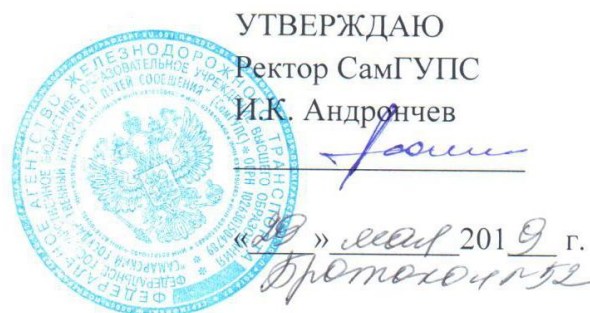 УТВЕРЖДАЮ
Ректор СамГУПС
И.К. Андрончев
«29» мая 2019 г.
Протокол №52
ФЕДЕРАЛЬНОЕ АГЕНТСТВО ЖЕЛЕЗНОДОРОЖНОГО ТРАНСПОРТА